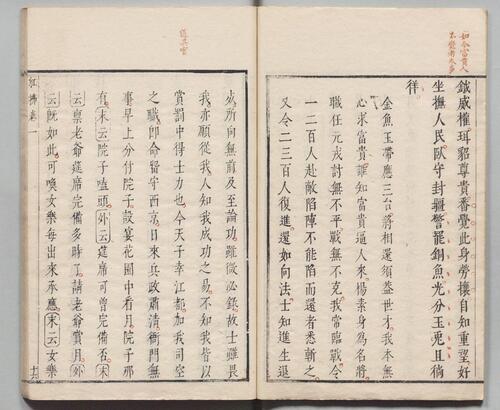 如今富貴人
不覺者太多
鉞威權珥貂尊貴番覺此身勞攘自知重望好
坐撫人民臥守封疆警罷銅魚光分玉兎且徜
徉
金魚玉帶應三台將相還須蓋世才我本無
心求富貴誰知富貴逼人來楊素身為名將
職任元戎討無不平戰無不克我常臨戰令
一二百人赴敵陷陣不能陷而還者悉斬之
又令二三百人復進還如向法士知進生退
必所向無前及至論功雖微必錄故士雖畏
我亦願從我人知我成功之易不知我皆以
賞罰中得士力也今天子幸江都加我司空
之職卽命留守西京日來兵政肅清衙門無
事早上分付院子設宴花園中看月院子那
有末云院子嗑頭外云筵席可曾完備否末
云稟老爺筵席完備多時了請老爺賞月外
云旣如此可喚女樂每出來承應末云女樂
紅拂卷一